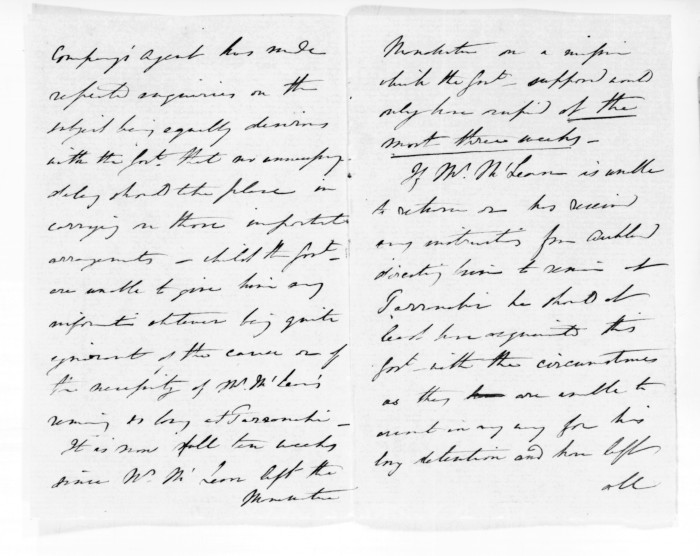 Company's Agent has made
repeated enquiries on the
subject being equally desirous
with the Govt. that no unnecessary
delay should take place in
carrying on those important
arrangements – whilst the Govt –
are unable to give him any
information whatever being quite
ignorant of the cause or of
the necessity of Mr. McLean's
remaining so long at Tarranaki –
It is now full ten weeks
since Mr. McLean left the
Manawatu
Manawatu on a mission
which the Govt – supposed would
only have occupied of the
most three weeks –
If Mr. McLean is unable
to return or has received
any instructions from Auckland
directing him to remain at
Tarranaki he should at
least have acquainted this
Govt – with the circumstances
as they are unable to
account in any way for his
long detention and have left
all